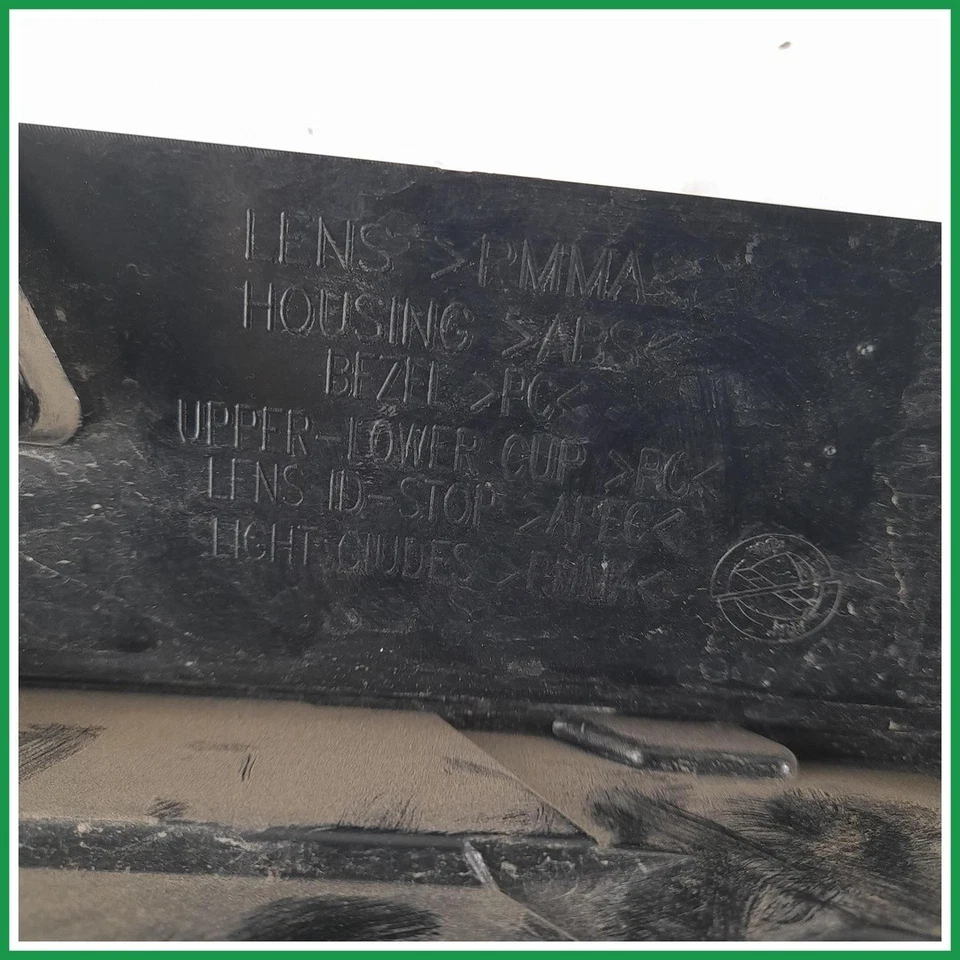 LENS >PMMA<
HOUSING >ABS<
BEZEL >PC<
UPPER-LOWER CUP >PC<
LENS ID-STOP >APEC<
LIGHT GIUDES >PMMA<